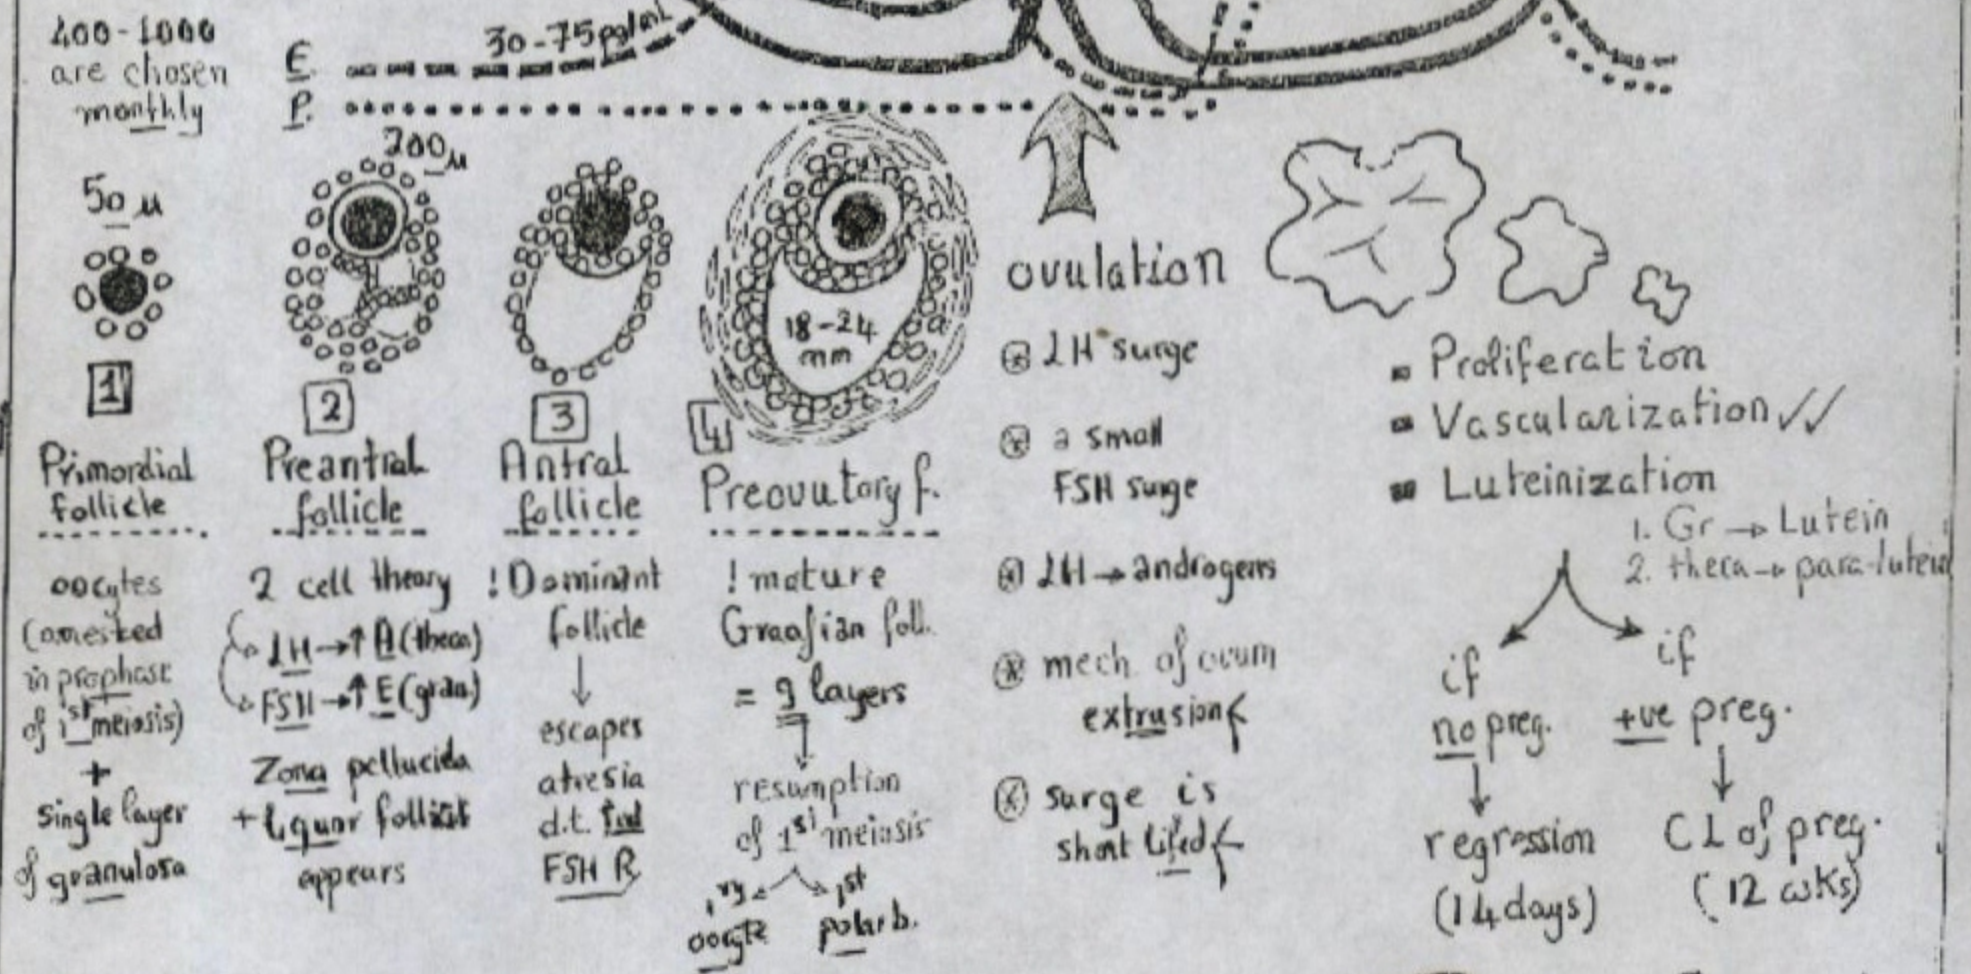 400-1000
are chosen
monthly
E
30-75 pg/ml
P.
50 µ
200 µ
18-24
mm
1
Primordial
follicle
oocytes
(arrested
in prophase
of 1st meiosis)
+
single layer
of granulosa
2
Preantral
follicle
2 cell theory
LH→↑A(theca)
FSH→↑E(gran.)
Zona pellucida
+ liquor folliculi
appears
3
Antral
follicle
! Dominant
follicle
↓
escapes
atresia
d.t.
FSH R
4
Preovutory f.
! mature
Graafian foll.
= 9 layers
↓
resumption
of 1st meiosis
ry 1st
oocyte polar b.
ovulation
LH surge
a small
FSH surge
LH→androgens
mech. of ovum
extrusion
surge is
short lifed
Proliferation
Vascularization ✓✓
Luteinization
1. Gr → Lutein
2. theca → para-lutein
if
no preg.
↓
regression
(14 days)
if
+ve preg.
↓
CL of preg.
(12 wks)